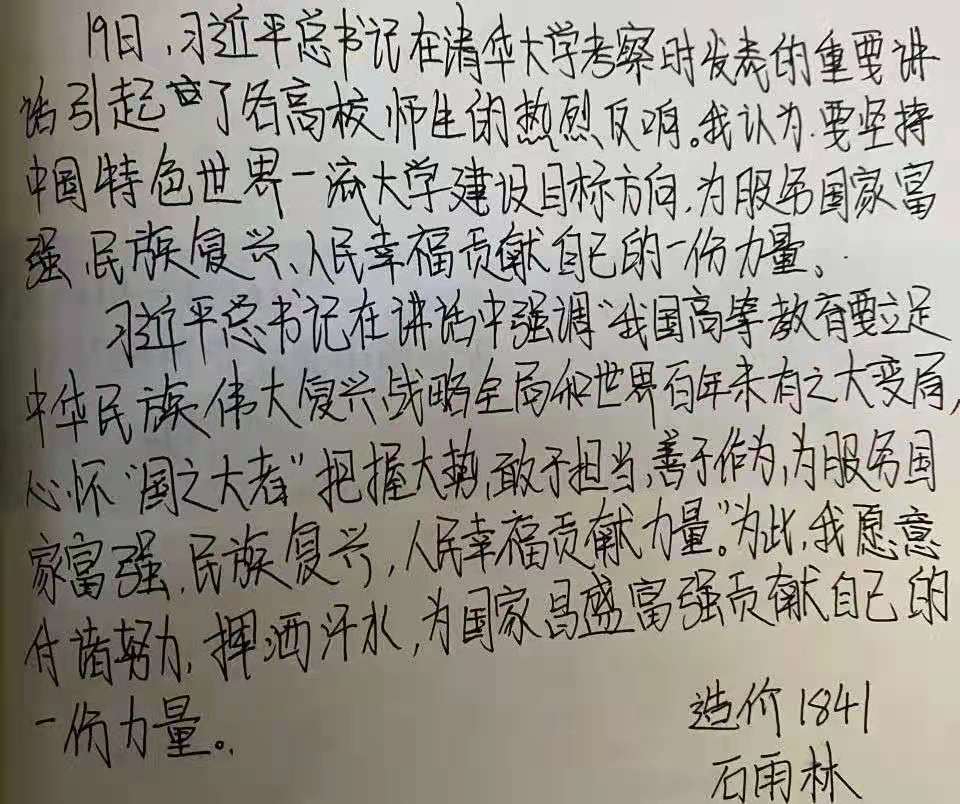 19日,习近平总书记在清华大学考察时发表的重要讲
话引起了各高校师生的热烈反响。我认为,要坚持
中国特色世界一流大学建设目标方向,为服务国家富
强、民族复兴、人民幸福贡献自己的一份力量。
习近平总书记在讲话中强调“我国高等教育要立足
中华民族伟大复兴战略全局和世界百年未有之大变局,
心怀“国之大者”把握大势,敢于担当,善于作为,为服务国
家富强,民族复兴,人民幸福贡献力量。”为此,我愿意
付诸努力,挥洒汗水,为国家昌盛富强贡献自己的
一份力量。
造价1841
石雨林